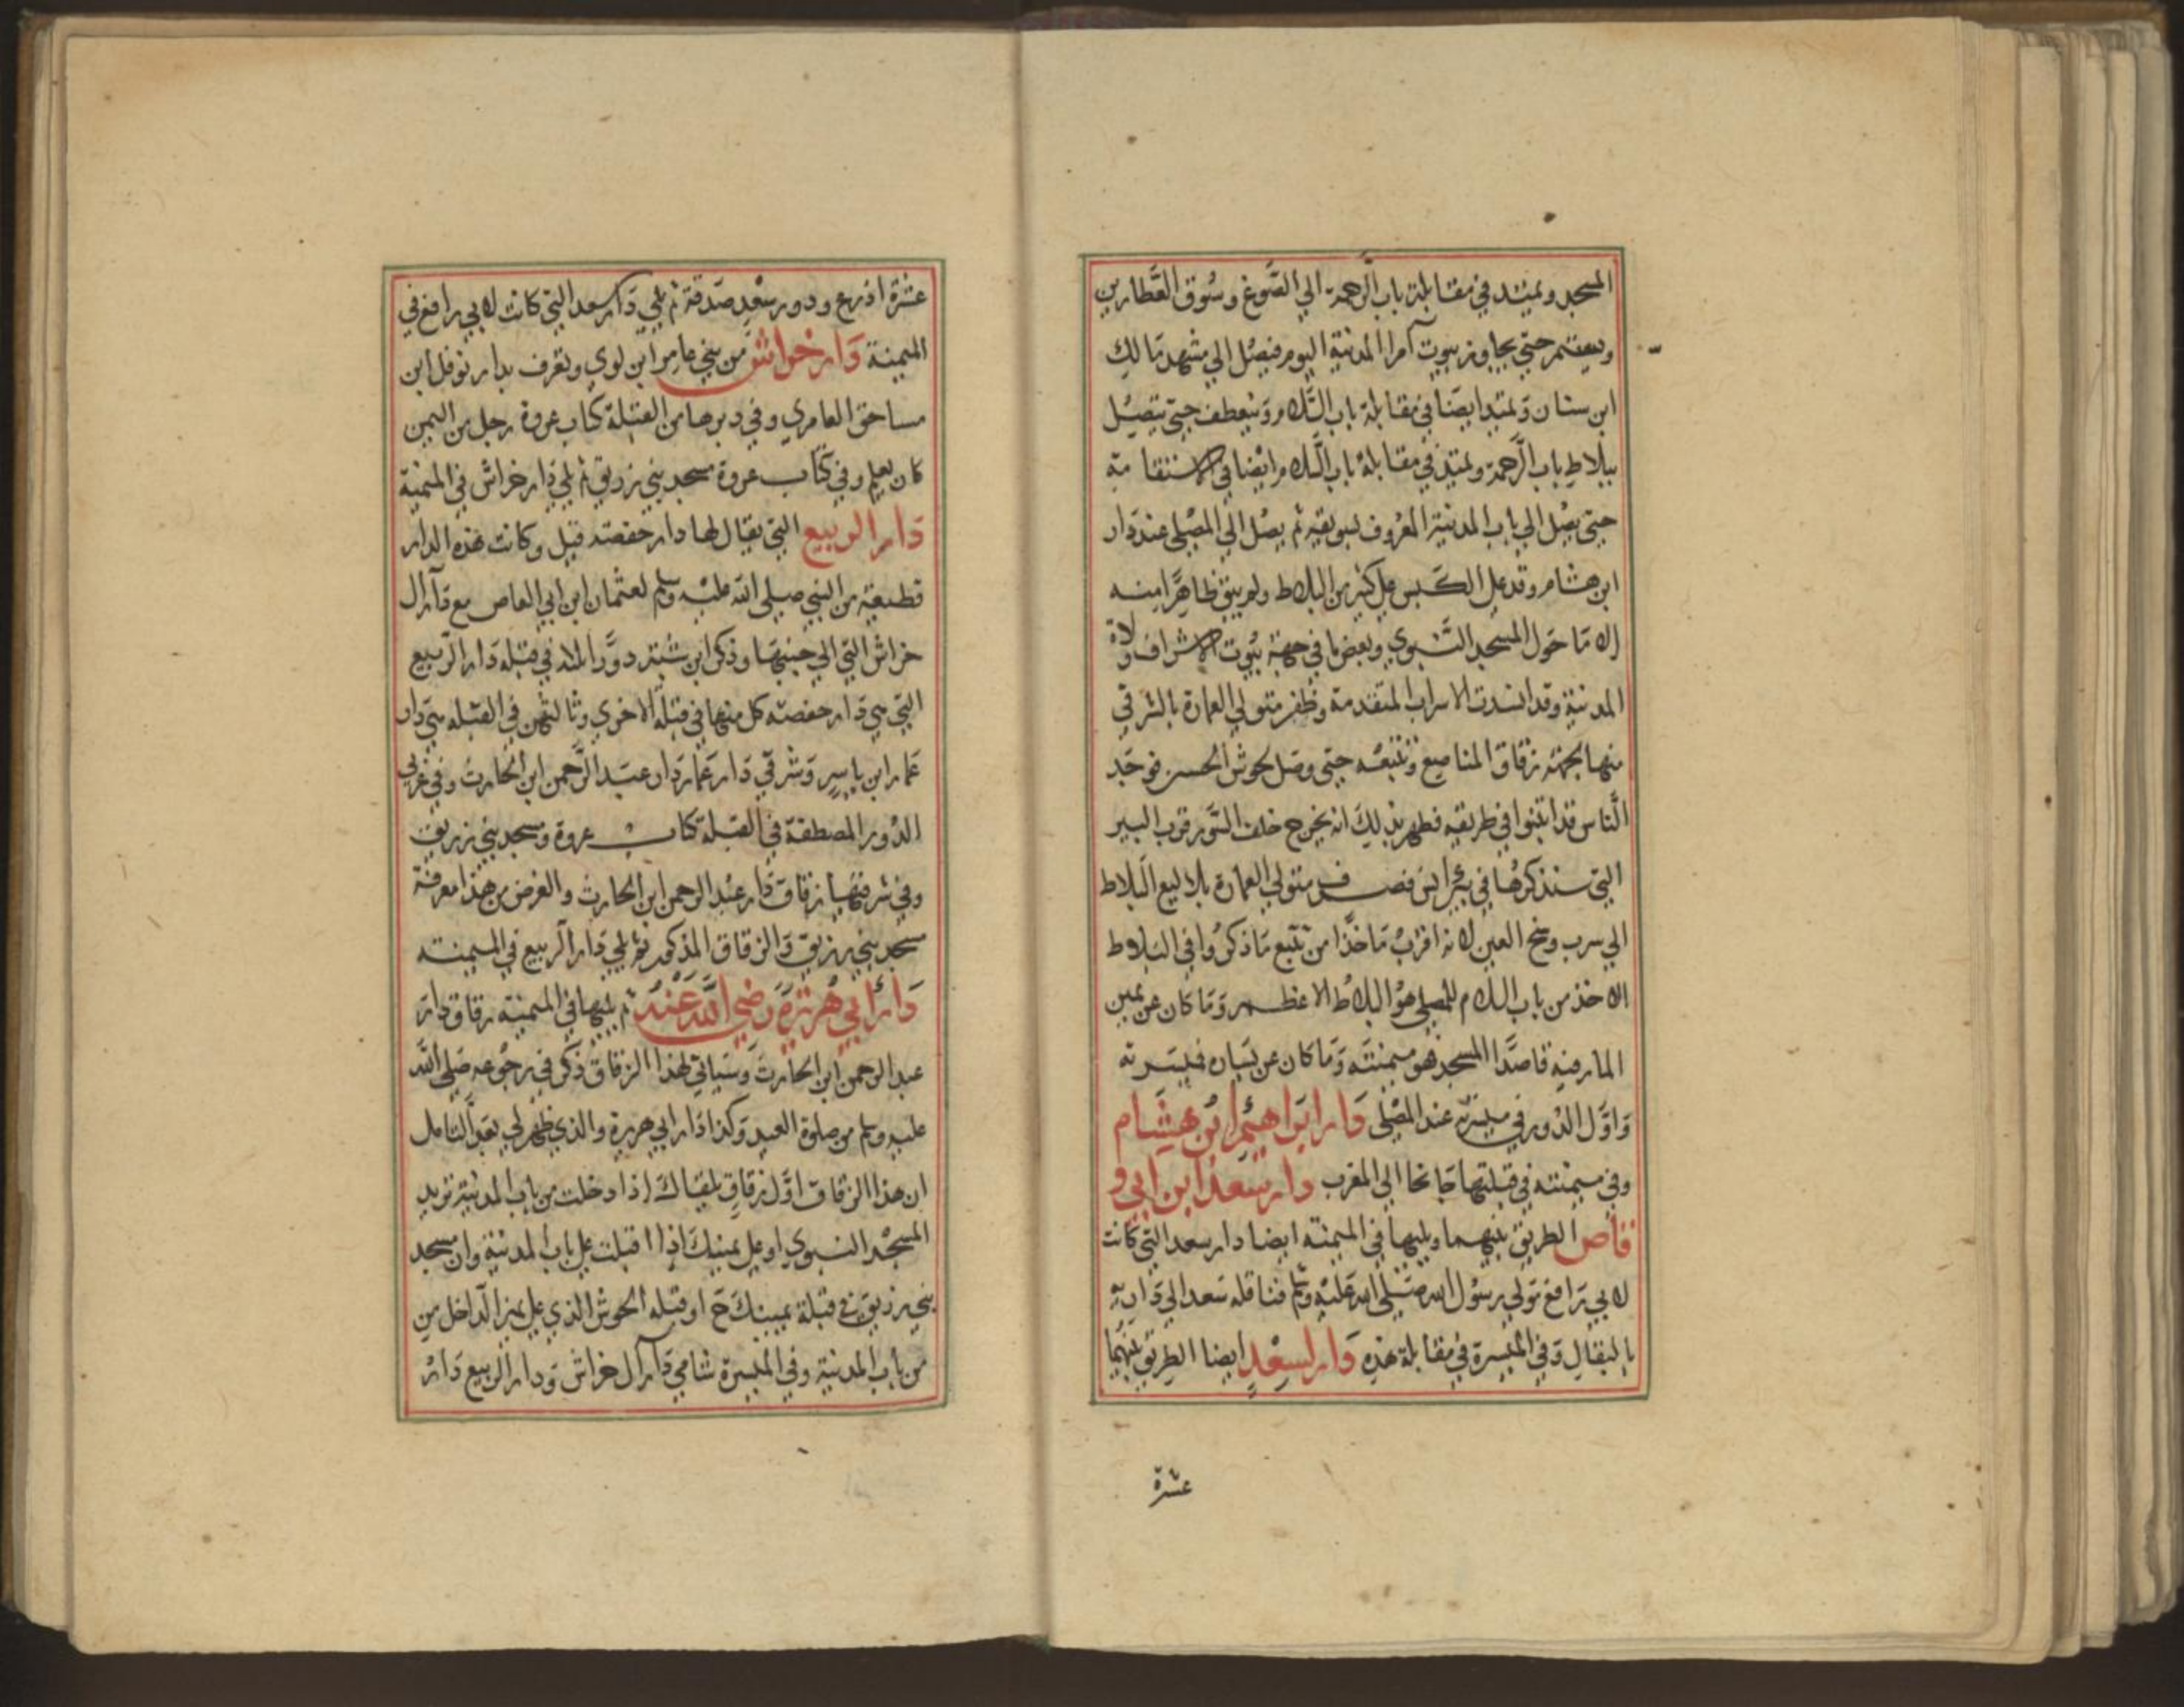 المسجد ويمتد في مقابلة باب الرحمة الي الصوغ وسوق العطارين
ويستمر حتي يجاوز بيوت امرا المدينة اليوم فيصل الي مشهد مالك
ابن سنان ويمتد ايضا في مقابلة باب السلام وينعطف حتي يتصل
ببلاط باب الرحمة ويمتد في مقابلة باب السلام ايضا في الاستقامة
حتي يصل الي باب المدينة المعروف بسويقه ثم يصل الي المصلي عند دار
ابن هشام وقد علي الكبس علي كثير من البلاط ولم يبق ظاهرا منه
الا ما حول المسجد النبوي وبعض ما في جهة بيوت الاشراف ولاة
المدينة وقد انسدت الاسراب المتقدمة وظفر متولي العمارة بالشرقي
منها بجهة زقاق المناصع وتتبعه حتي وصل لحوش الحسن فوجد
الناس قد ابتنوا في طريقه فظهر بذلك انه يخرج خلف السور قرب البير
التي سنذكرها في بير انس فصرف متولي العمارة بلاليع البلاط
الي سرب وسخ العين لانه اقرب ماخذا من تتبع ما ذكروا في البلاط
الاخذ من باب السلام للمصلي هو البلاط الاعظم وما كان عن يمين
المار فيه قاصدا المسجد فهو ميمنته وما كان عن يساره فميسرته
واول الدور في ميسرته عند المصلي دار ابراهيم ابن هشام
وفي ميمنته في قبلتها جانحا الي المغرب دار سعد ابن ابي و
قاص الطريق بينهما ويليها في الميمنه ايضا دار سعد التي كانت
لابي رافع مولي رسول الله صلي الله عليه وسلم فناقله سعد الي داريه
بالبقال وفي الميسرة في مقابلة هذه دار لسعد ايضا الطريق بينهما
عشرة
عشرة اذرع ودور سعد صدقة ثم يلي دار سعد التي كانت لابي رافع في
الميمنة دار خراش من بني عامر ابن لوي وتعرف بدار نوفل ابن
مساحق العامري وفي دبرها من القبلة كتاب عروة رجل من اليمن
كان يعلم وفي كتاب عروة مسجد بني زريق ثم يلي دار خراش في الميمنة
دار الربيع التي يقال لها دار حفصة قيل وكانت هذه الدار
قطيعة من النبي صلي الله عليه وسلم لعثمان ابن ابي العاص مع دار ال
خراش التي الي جنبها وذكر ابن شبة دورا ثلاثه في قبلة دار الربيع
التي هي دار حفصه كل منها في قبلة الاخري وثالثهن في القبله هي دار
عمار ابن ياسر وشرقي دار عمار دار عبد الرحمن ابن الحارث وفي غربي
الدور المصطفة في القبلة كتاب عروة ومسجد بني زريق
وفي شرقيها زقاق دار عبد الرحمن ابن الحارث والغرض من هذا معرفة
مسجد بني زريق والزقاق المذكور ثم يلي دار الربيع في الميمنه
دار ابي هريرة رضي الله عنه ثم يليها في الميمنة زقاق دار
عبد الرحمن ابن الحارث وسياتي لهذا الزقاق ذكر في رجوعه صلي الله
عليه وسلم من صلوة العيد وكذا دار ابي هريرة والذي ظهر لي بعد التامل
ان هذا الزقاق اول زقاق يلقاك اذا دخلت من باب المدينة تريد
المسجد النبوي او علي يمينك اذا اقبلت علي باب المدينة وان مسجد
بني زريق في قبلة يمينك ح او قبله الحوش الذي علي يمين الداخل من
من باب المدينة وفي الميسرة شامي دار آل خراش ودار الربيع دار